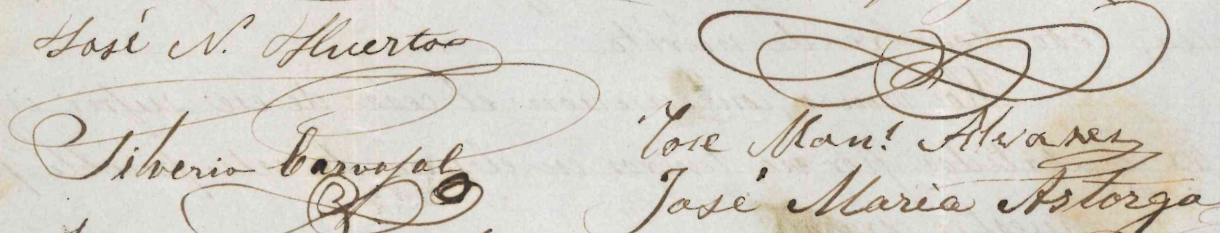 José N. Huerta
Silverio Carvajal
Jose Man.l Alvares
José Maria Astorga